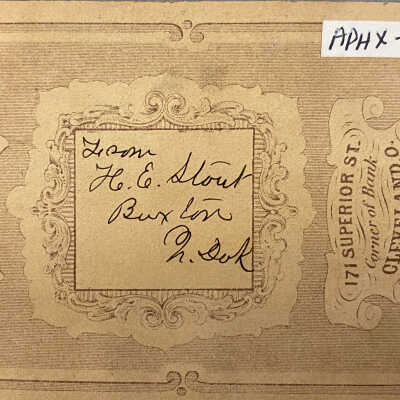 APHX-
From
H. E. Stout
Buxton
N. Dak
171 SUPERIOR ST.
Corner of Bank
CLEVELAND, O.